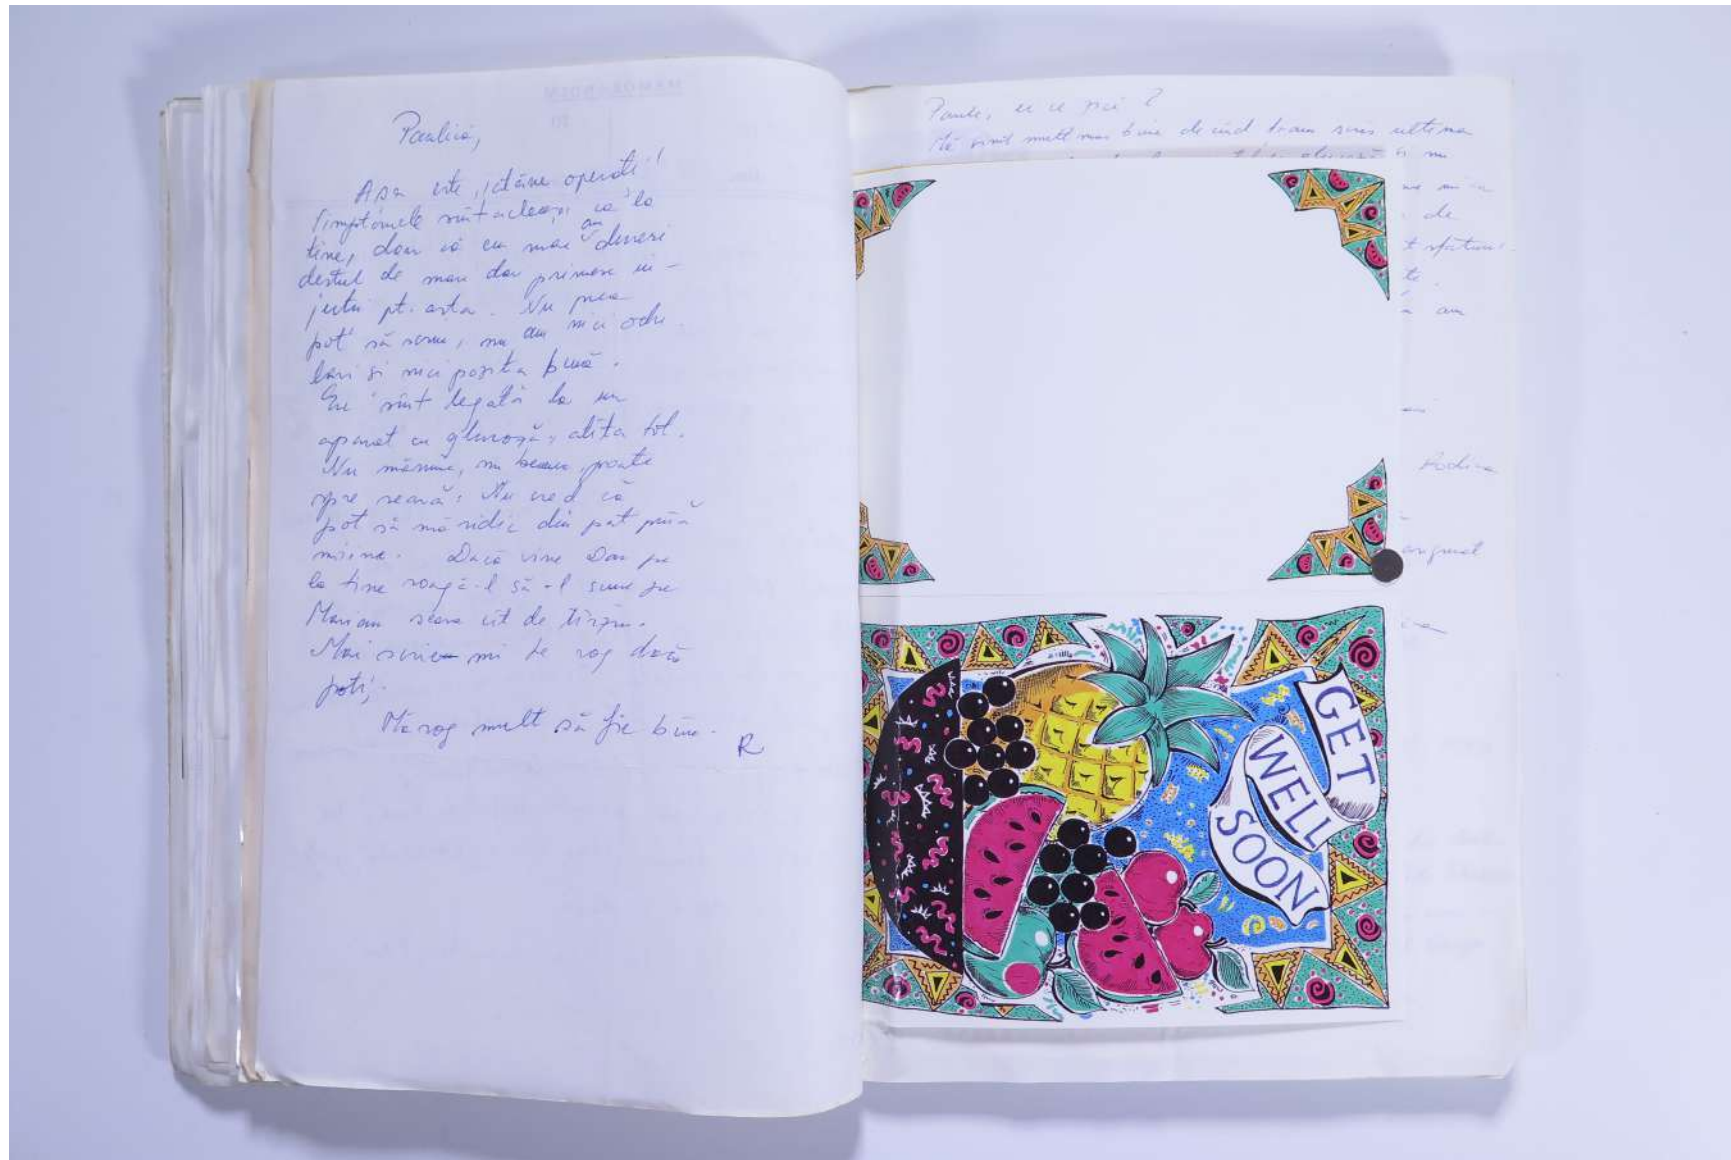 Paulica,
Asa este, jităne operati!
simptomele sînt aceleași ca la
tine, doar că eu mai am dureri
destul de mari dar primesc in-
jectii pt. asta. Nu prea
pot să scriu, nu am nici oche-
lari si nici pozitia bună.
Eu sînt legată la un
aparat cu glucoză, atîta tot.
Nu mănînc, nu beau, poate
spre seară. Nu cred că
pot să mă ridic din pat pînă
mîine. Dacă vine Dan pe
la tine roagă-l să-l sune pe
Marian seara cît de tîrziu.
Mai scrie mi te rog dacă
poti,
Mă rog mult să fie bine.
R
ce
Mă simt mult mai bine de cînd ti-am scris ultima
si nu
de
te.
am
Rodica
GET
WELL
SOON